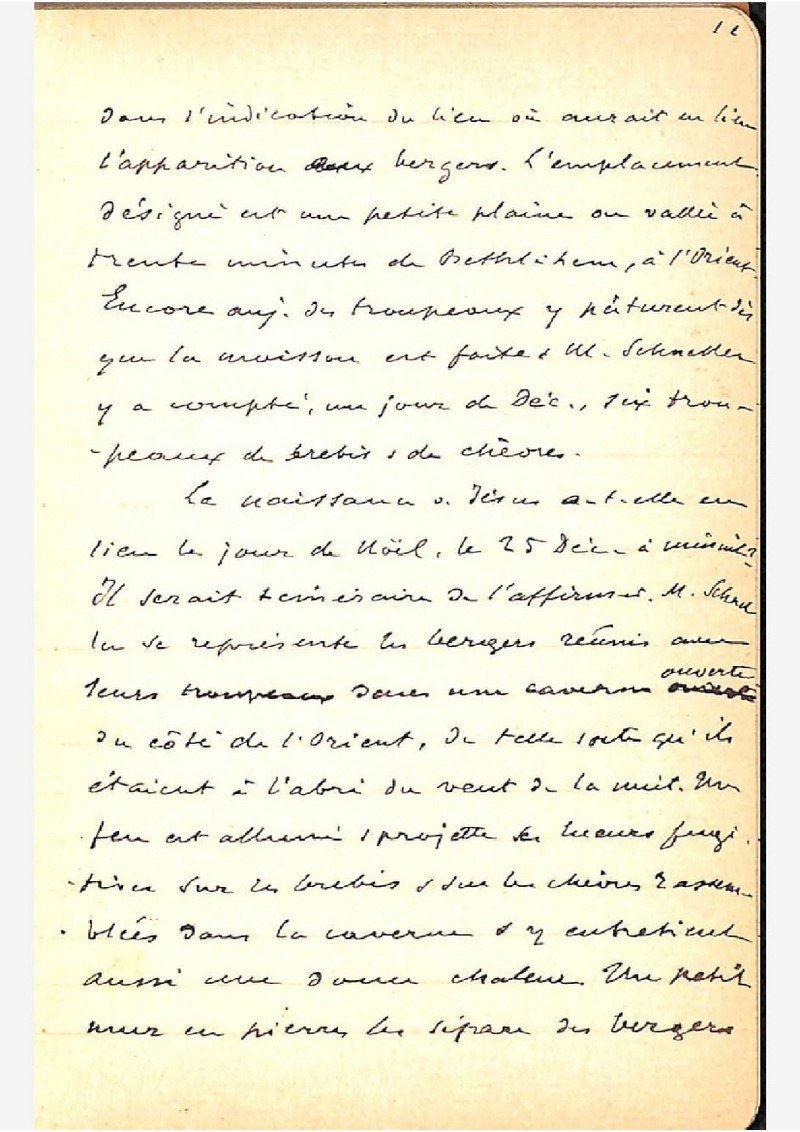 12
dans l'indication du lieu où aurait eu lieu
l'apparition aux bergers. L'emplacement
désigné est une petite plaine ou vallée à
trente minutes de Bethléhem, à l'Orient.
Encore auj. des troupeaux y pâturent dès
que la moisson est faite & M. Schneller
y a compté, un jour de Déc., six trou-
-peaux de brebis & de chèvres.
La naissance de Jésus a-t-elle eu
lieu le jour de Noël, le 25 Déc. à minuit?
Il serait téméraire de l'affirmer. M. Schnel
ler se représente les bergers réunis avec
leurs troupeaux dans une caverne ouverte
du côté de l'Orient, de telle sorte qu'ils
étaient à l'abri du vent de la nuit. Un
feu est allumé & projette ses lueurs fugi-
-tives sur les brebis & sur les chèvres rassem-
-blées dans la caverne & y entretient
aussi une douce chaleur. Un petit
mur en pierres les sépare des bergers